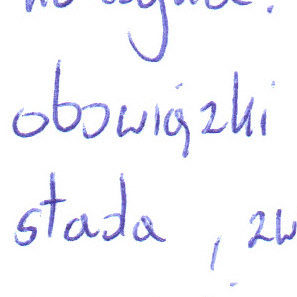 obowiązki
stada, zw